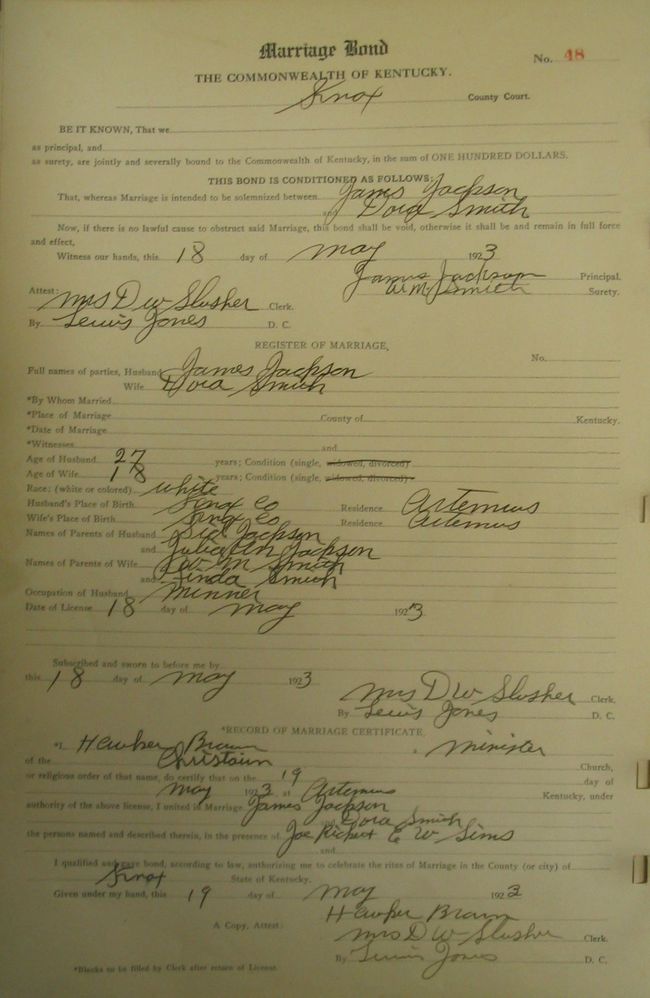 Marriage Bond
No. 48
THE COMMONWEALTH OF KENTUCKY.
Knox County Court.
BE IT KNOWN, That we
as principal, and
as surety, are jointly and severally bound to the Commonwealth of Kentucky, in the sum of ONE HUNDRED DOLLARS.
THIS BOND IS CONDITIONED AS FOLLOWS:
That, whereas Marriage is intended to be solemnized between James Jackson
and Dora Smith
Now, if there is no lawful cause to obstruct said Marriage, this bond shall be void, otherwise it shall be and remain in full force
and effect,
Witness our hands, this 18 day of may 1923
James Jackson Principal,
W. M. Smith Surety.
Attest: Mrs D W Slusher Clerk.
By Lewis Jones D. C.
REGISTER OF MARRIAGE,
No.
Full names of parties, Husband James Jackson
Wife Dora Smith
*By Whom Married
*Place of Marriage County of Kentucky.
*Date of Marriage
*Witnesses and
Age of Husband 27 years; Condition (single, widowed, divorced)
Age of Wife 18 years; Condition (single, widowed, divorced)
Race: (white or colored) white
Husband's Place of Birth Knox Co Residence Artemus
Wife's Place of Birth Knox Co Residence Artemus
Names of Parents of Husband Sid Jackson
and Julia Ann Jackson
Names of Parents of Wife M Smith
and Linda Smith
Occupation of Husband Minner
Date of License 18 day of may 1923
Subscribed and sworn to before me by
this 18 day of may 1923
Mrs D W Slusher Clerk.
By Lewis Jones D. C.
*RECORD OF MARRIAGE CERTIFICATE,
*I, Hawker Brown a minister
of the Christain Church,
or religious order of that name, do certify that on the 19 day of
may 1923 at Artemus Kentucky, under
authority of the above license, I united in Marriage James Jackson
and Dora Smith
the persons named and described therein, in the presence of Joe E W Sims
and
I qualified and gave bond, according to law, authorizing me to celebrate the rites of Marriage in the County (or city) of
Knox State of Kentucky.
Given under my hand, this 19 day of may 1923
Hawker Brown
A Copy, Attest: Mrs D W Slusher Clerk.
By Lewis Jones D. C.
*Blanks to be filled by Clerk after return of License.